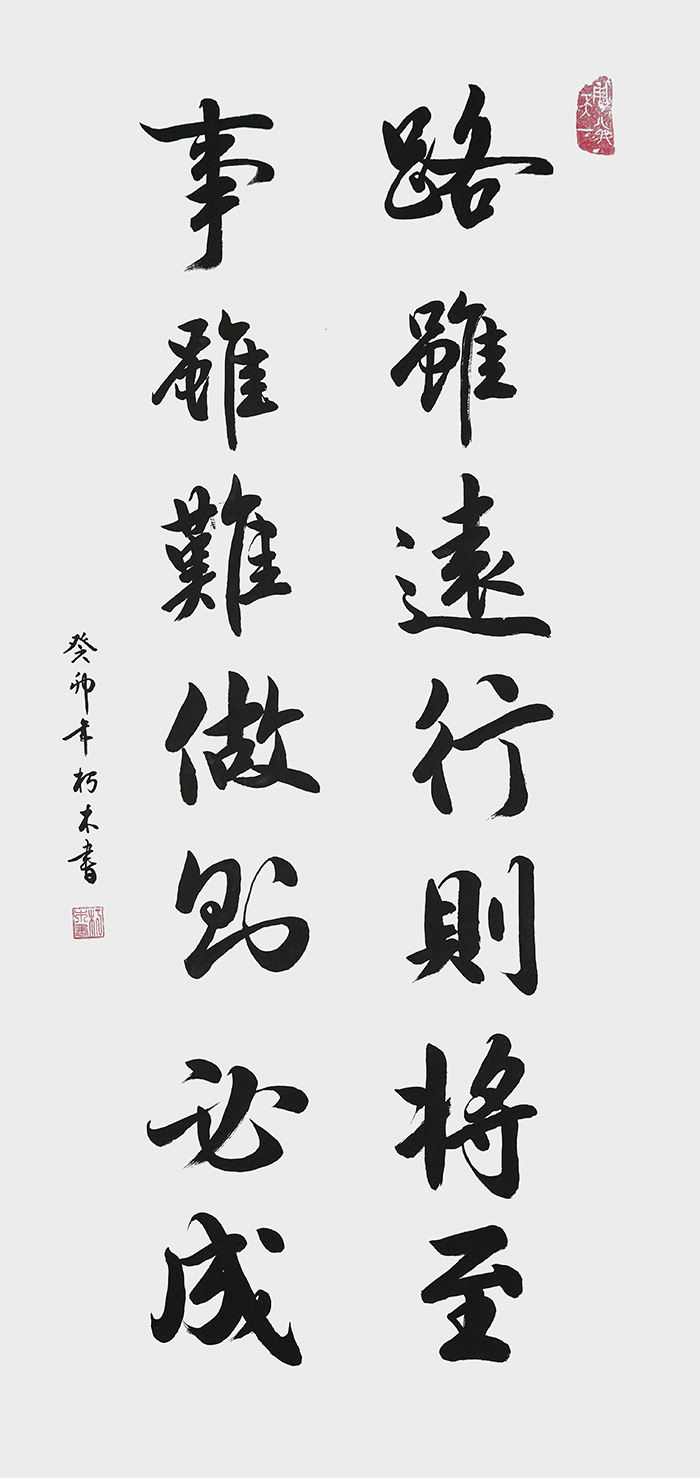 路雖遠行則將至
事雖難做則必成
癸卯年朽木書